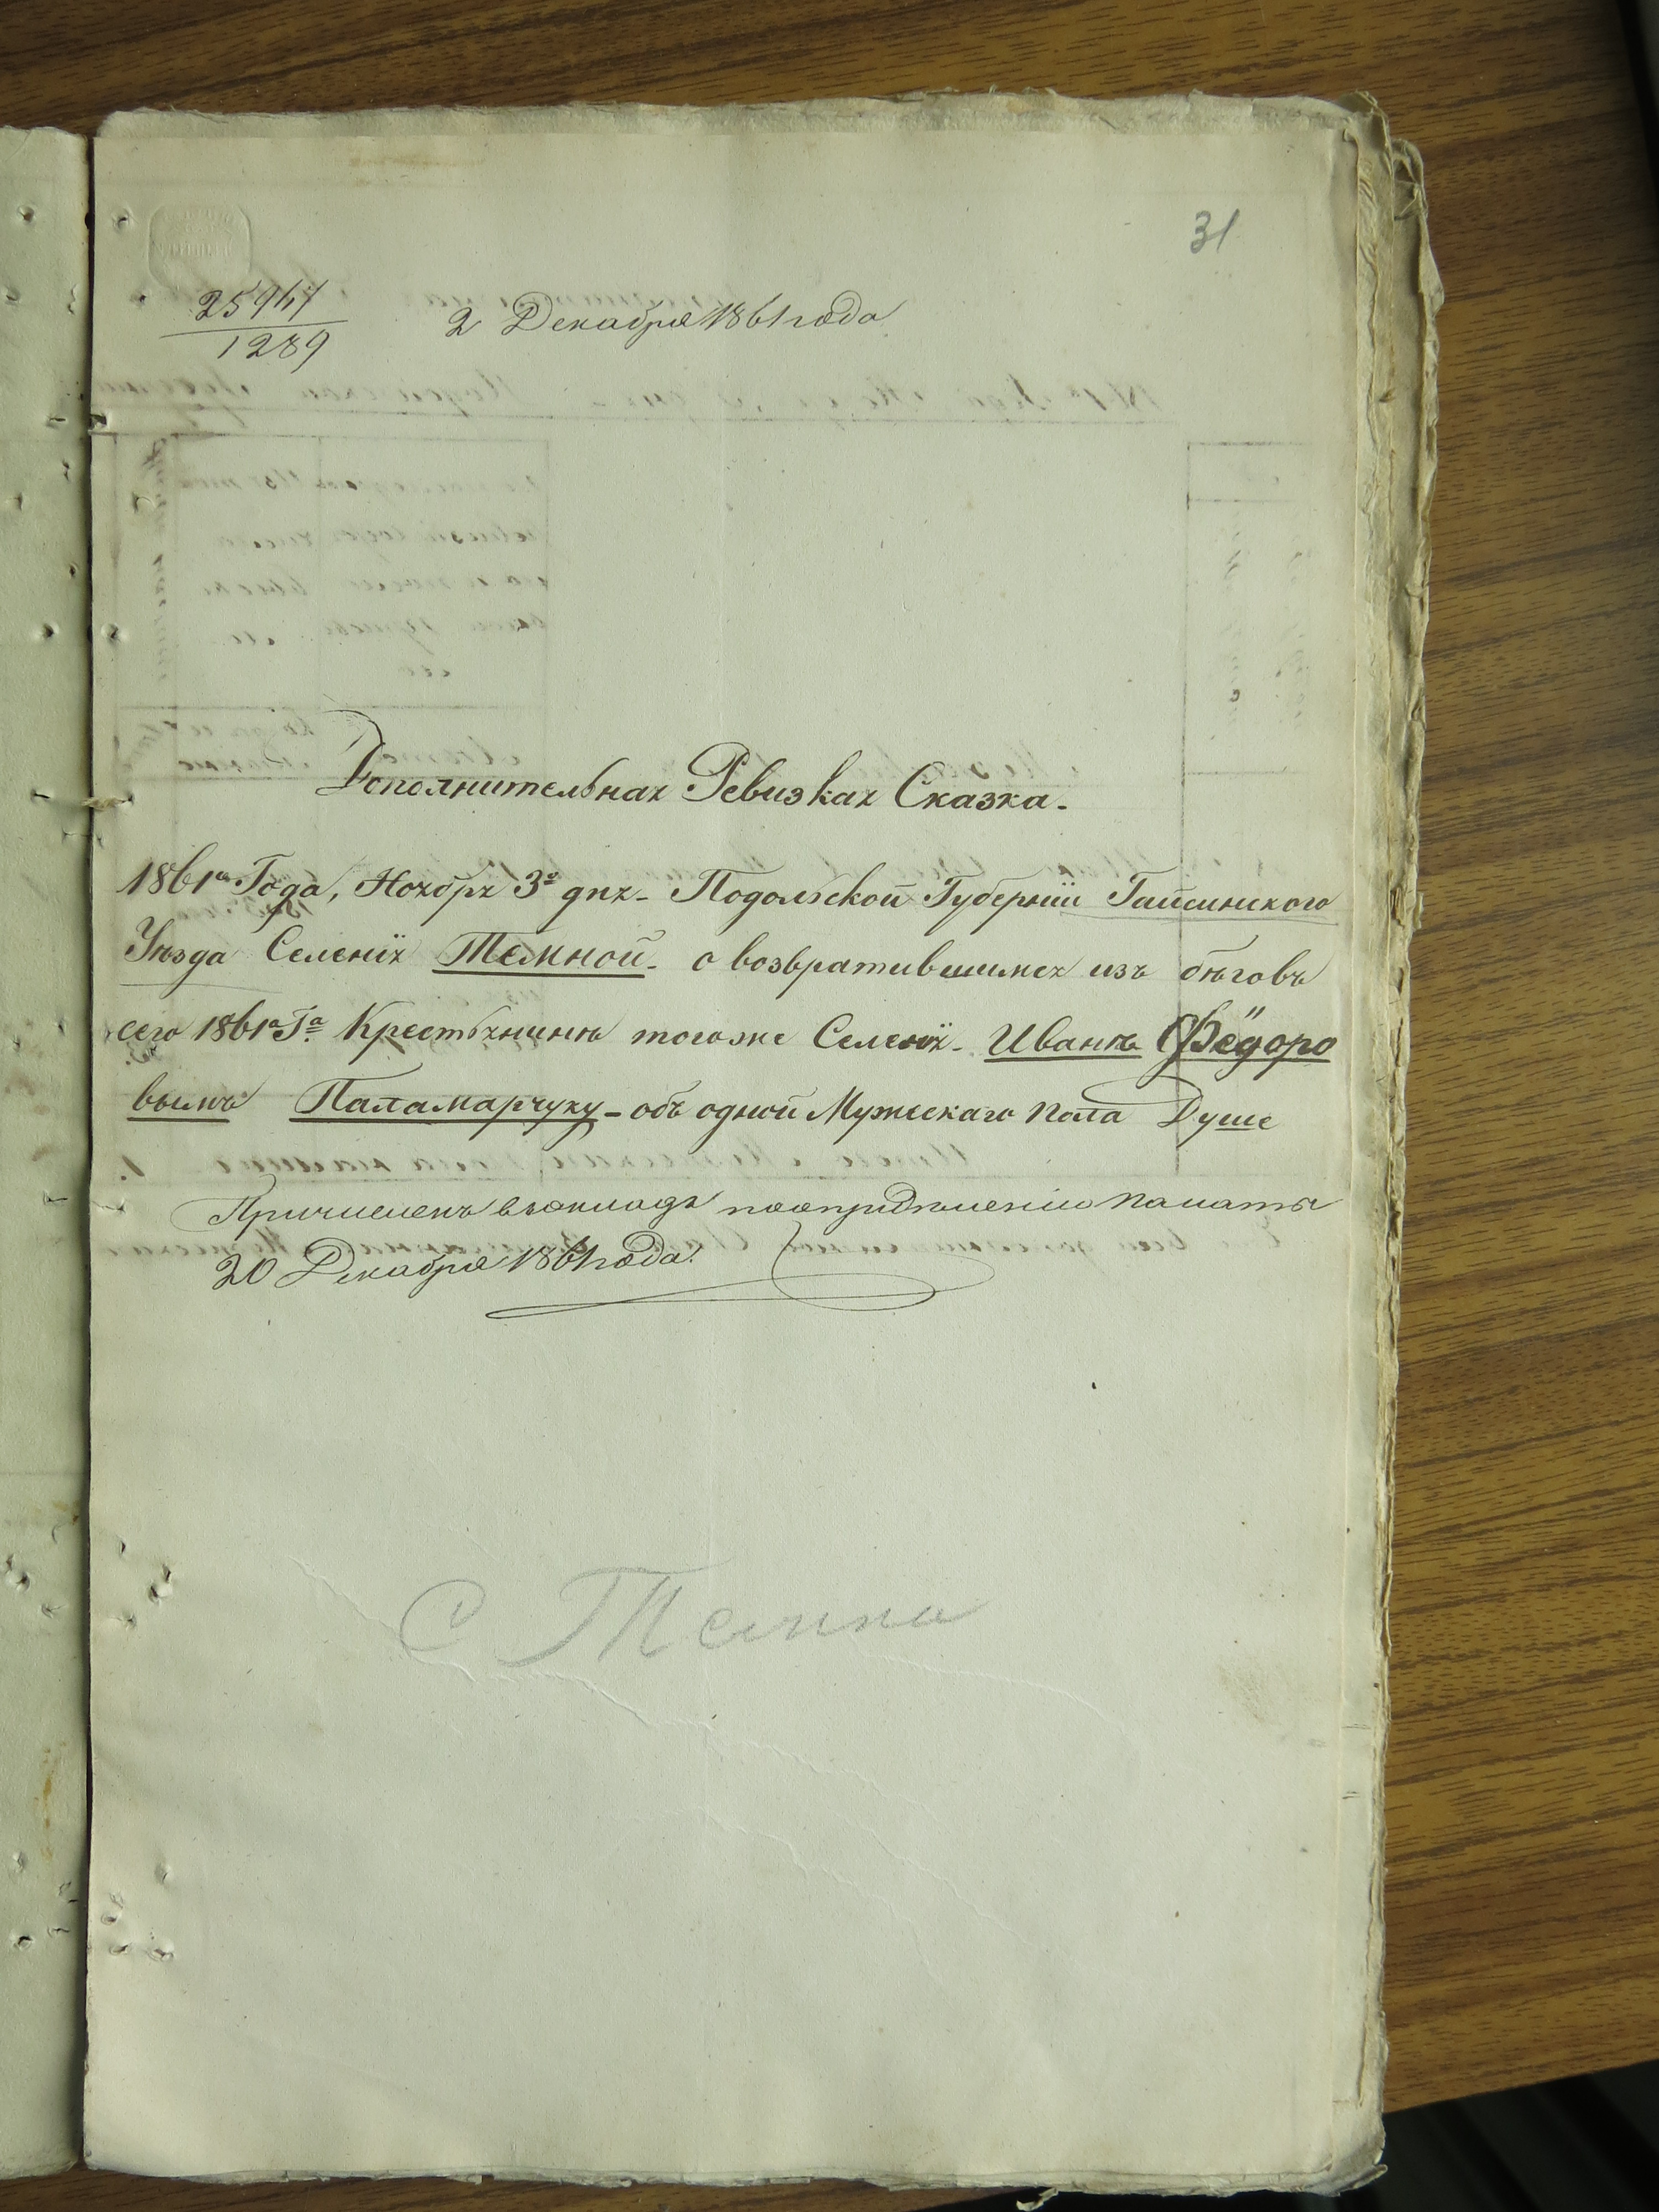 31
2 Декабря 1861 года
1289
Дополнительная Ревизкая Сказка.
1861го Года, Ноября 3го дня – Подольской Губерніи Гайсинского
Уѣзда Селенія Темной – о возвратившимся изъ бѣговъ
сего 1861а Га. Крестьянинѣ тогоже Селенія – Иванѣ Фёдоро
вымъ Паламарчуку – объ одной Мужескаго пола Душе
Причисленъ въ окладъ по опредѣленію палаты
20 Декабря 1861 года.
С Темна